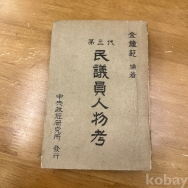 金鍾範 編著
第三代
民議員人物考
中央政經硏究所 發行
kobay